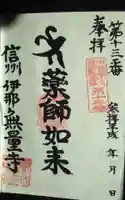 第十三番
奉拝
参拝 年 月 日
薬師如来
信州 伊那 無量寺